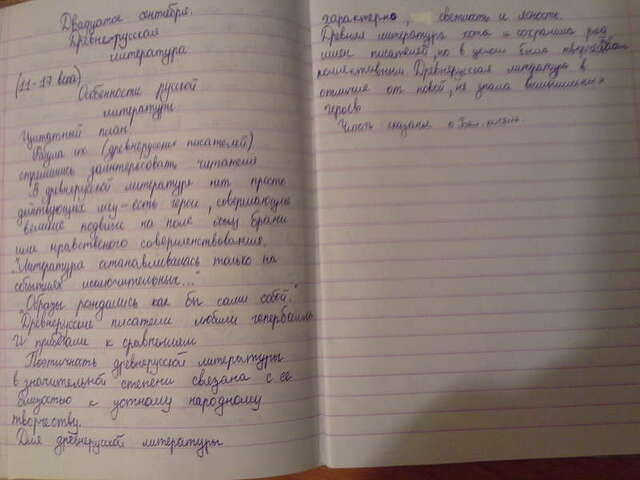 Двадцатое сентября.
Древнерусская
литература
(11-17 века)
Особенности русской
литературы
Цитатный план
их (древнерусских писателей)
стремились заинтересовать читателя
"В древнерусской литературе нет просто
действующих лиц - есть герои, совершающие
великие подвиги на поле брани
или нравственного совершенствования.
"Литература останавливалась только на
событиях исключительных..."
"Образы рождались как бы сами собой."
"Древнерусские писатели любили гиперболы
и к сравнениям
Поэтичность древнерусской литературы
в значительной степени связана с её
близостью к устному народному
творчеству.
Для древнерусской литературы
характерно, светлость и ясность.
Древняя литература хотя и сохранила ряд
имен писателей, но в целом была творчеством
коллективным Древнерусская литература в
отличие от новой, не знала вымышленных
героев
Читать сказание о